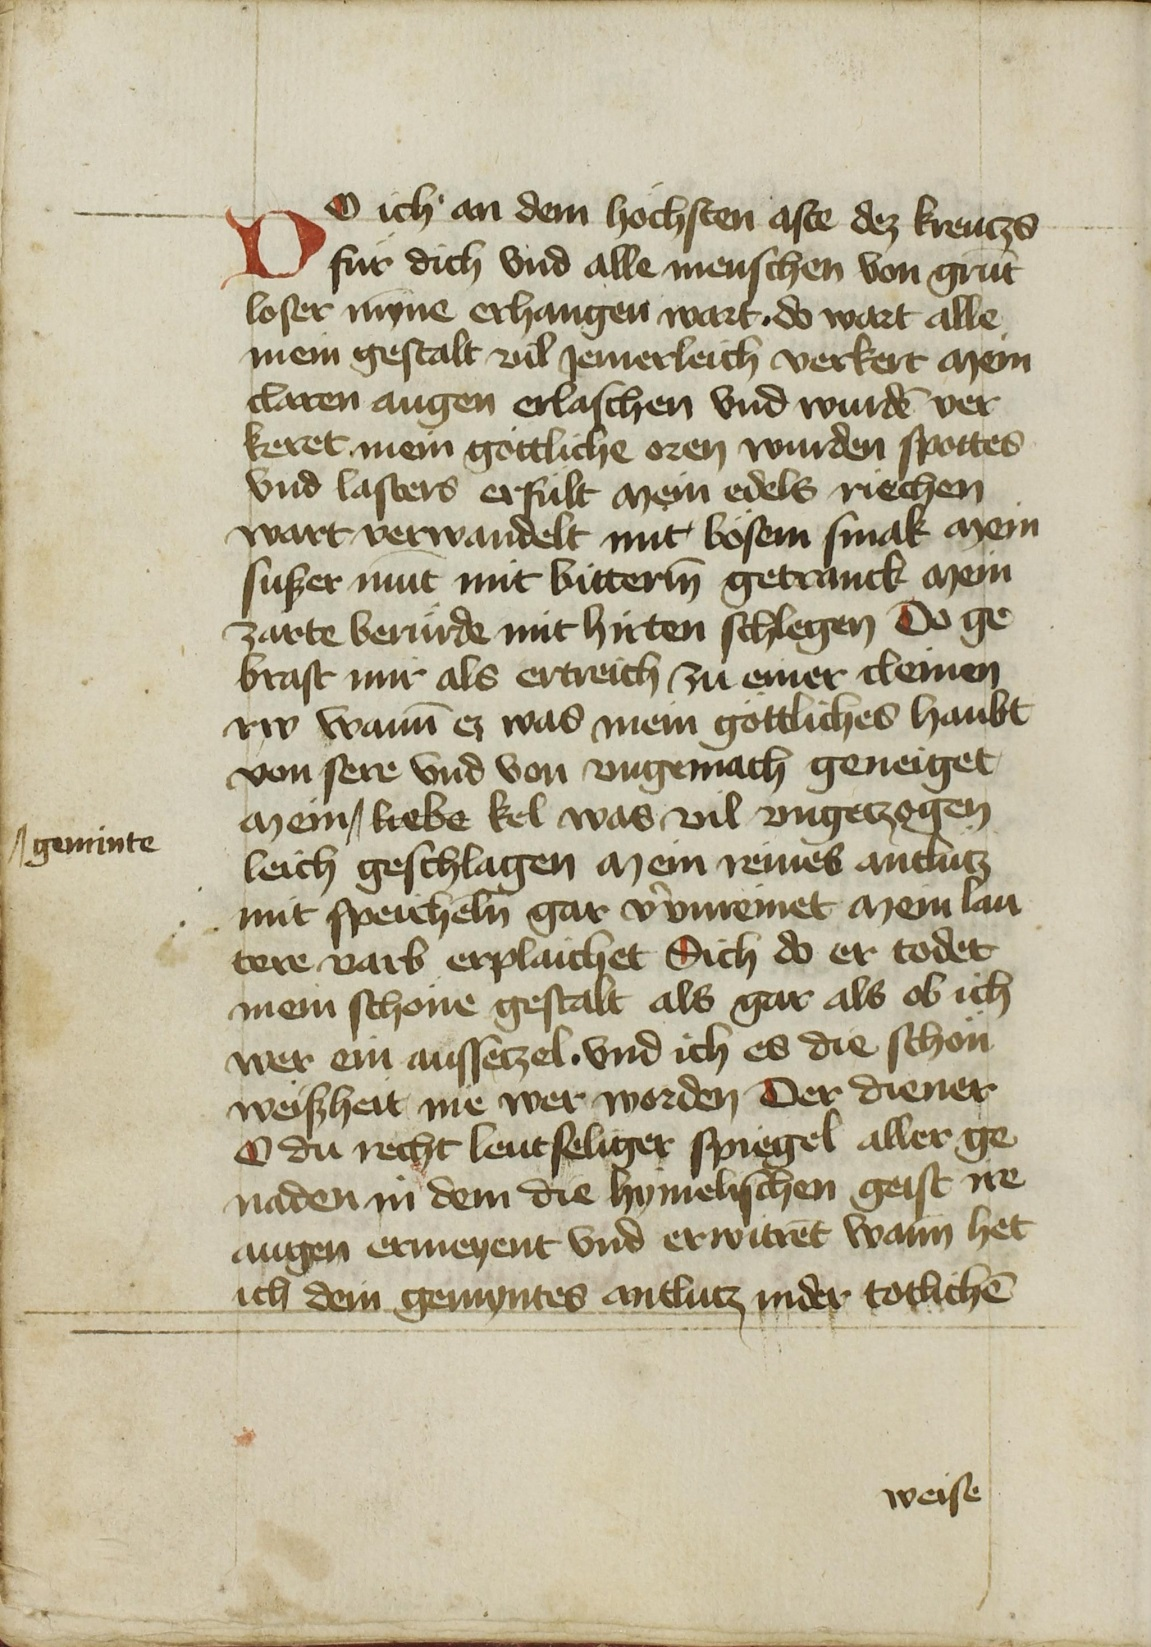 Do ich an dem höchsten aste dez kreutzs
für dich vnd alle menschen von grūt
loser mȳne erhangen wart. do wart alle
mein gestalt vil jemerleich verkert Mein
claren augen erlaschen vnd wurdē ver
keret. mein göttliche oren wurden spottes
vnd lasters erfült Mein edels riechen
wart verwandelt mit bösem smak Mein
süßer mūt mit bitterm̄ getranck Mein
zarte berürde mit hirten schlegen Do ge
brast mir als ertreich zu einer cleinen
rw wann̄ ez was mein göttliches haubt
von sere vnd von vngemach geneiget
Mein // liebe kel was vil vngetzogen
// geminte
leich geschlagen Mein reines antlütz
mit speicheln̄ gar v̾vnreinet Mein lau
tere varb erplaichet Sich do er todet
mein schone gestalt als gar als ob ich
wer ein aussetzel. vnd ich es die schön
weißheit nie wer worden Der diener
O du recht leutseliger spiegel aller ge
naden in dem die hymelischen geist ire
augen ermeyent vnd erwitrēt wann̄ het
ich dein gemyntes antlutz in der totlichē
weise